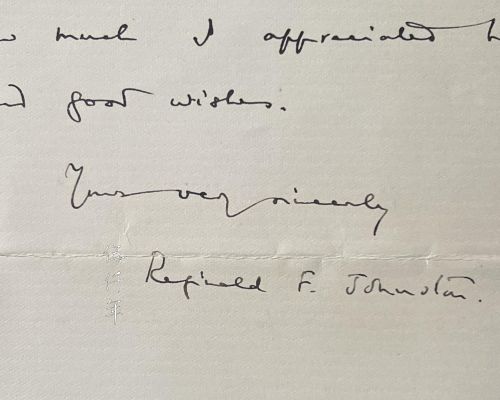 much I appreciated
good wishes.
Yours very sincerely
Reginald F. Johnston.